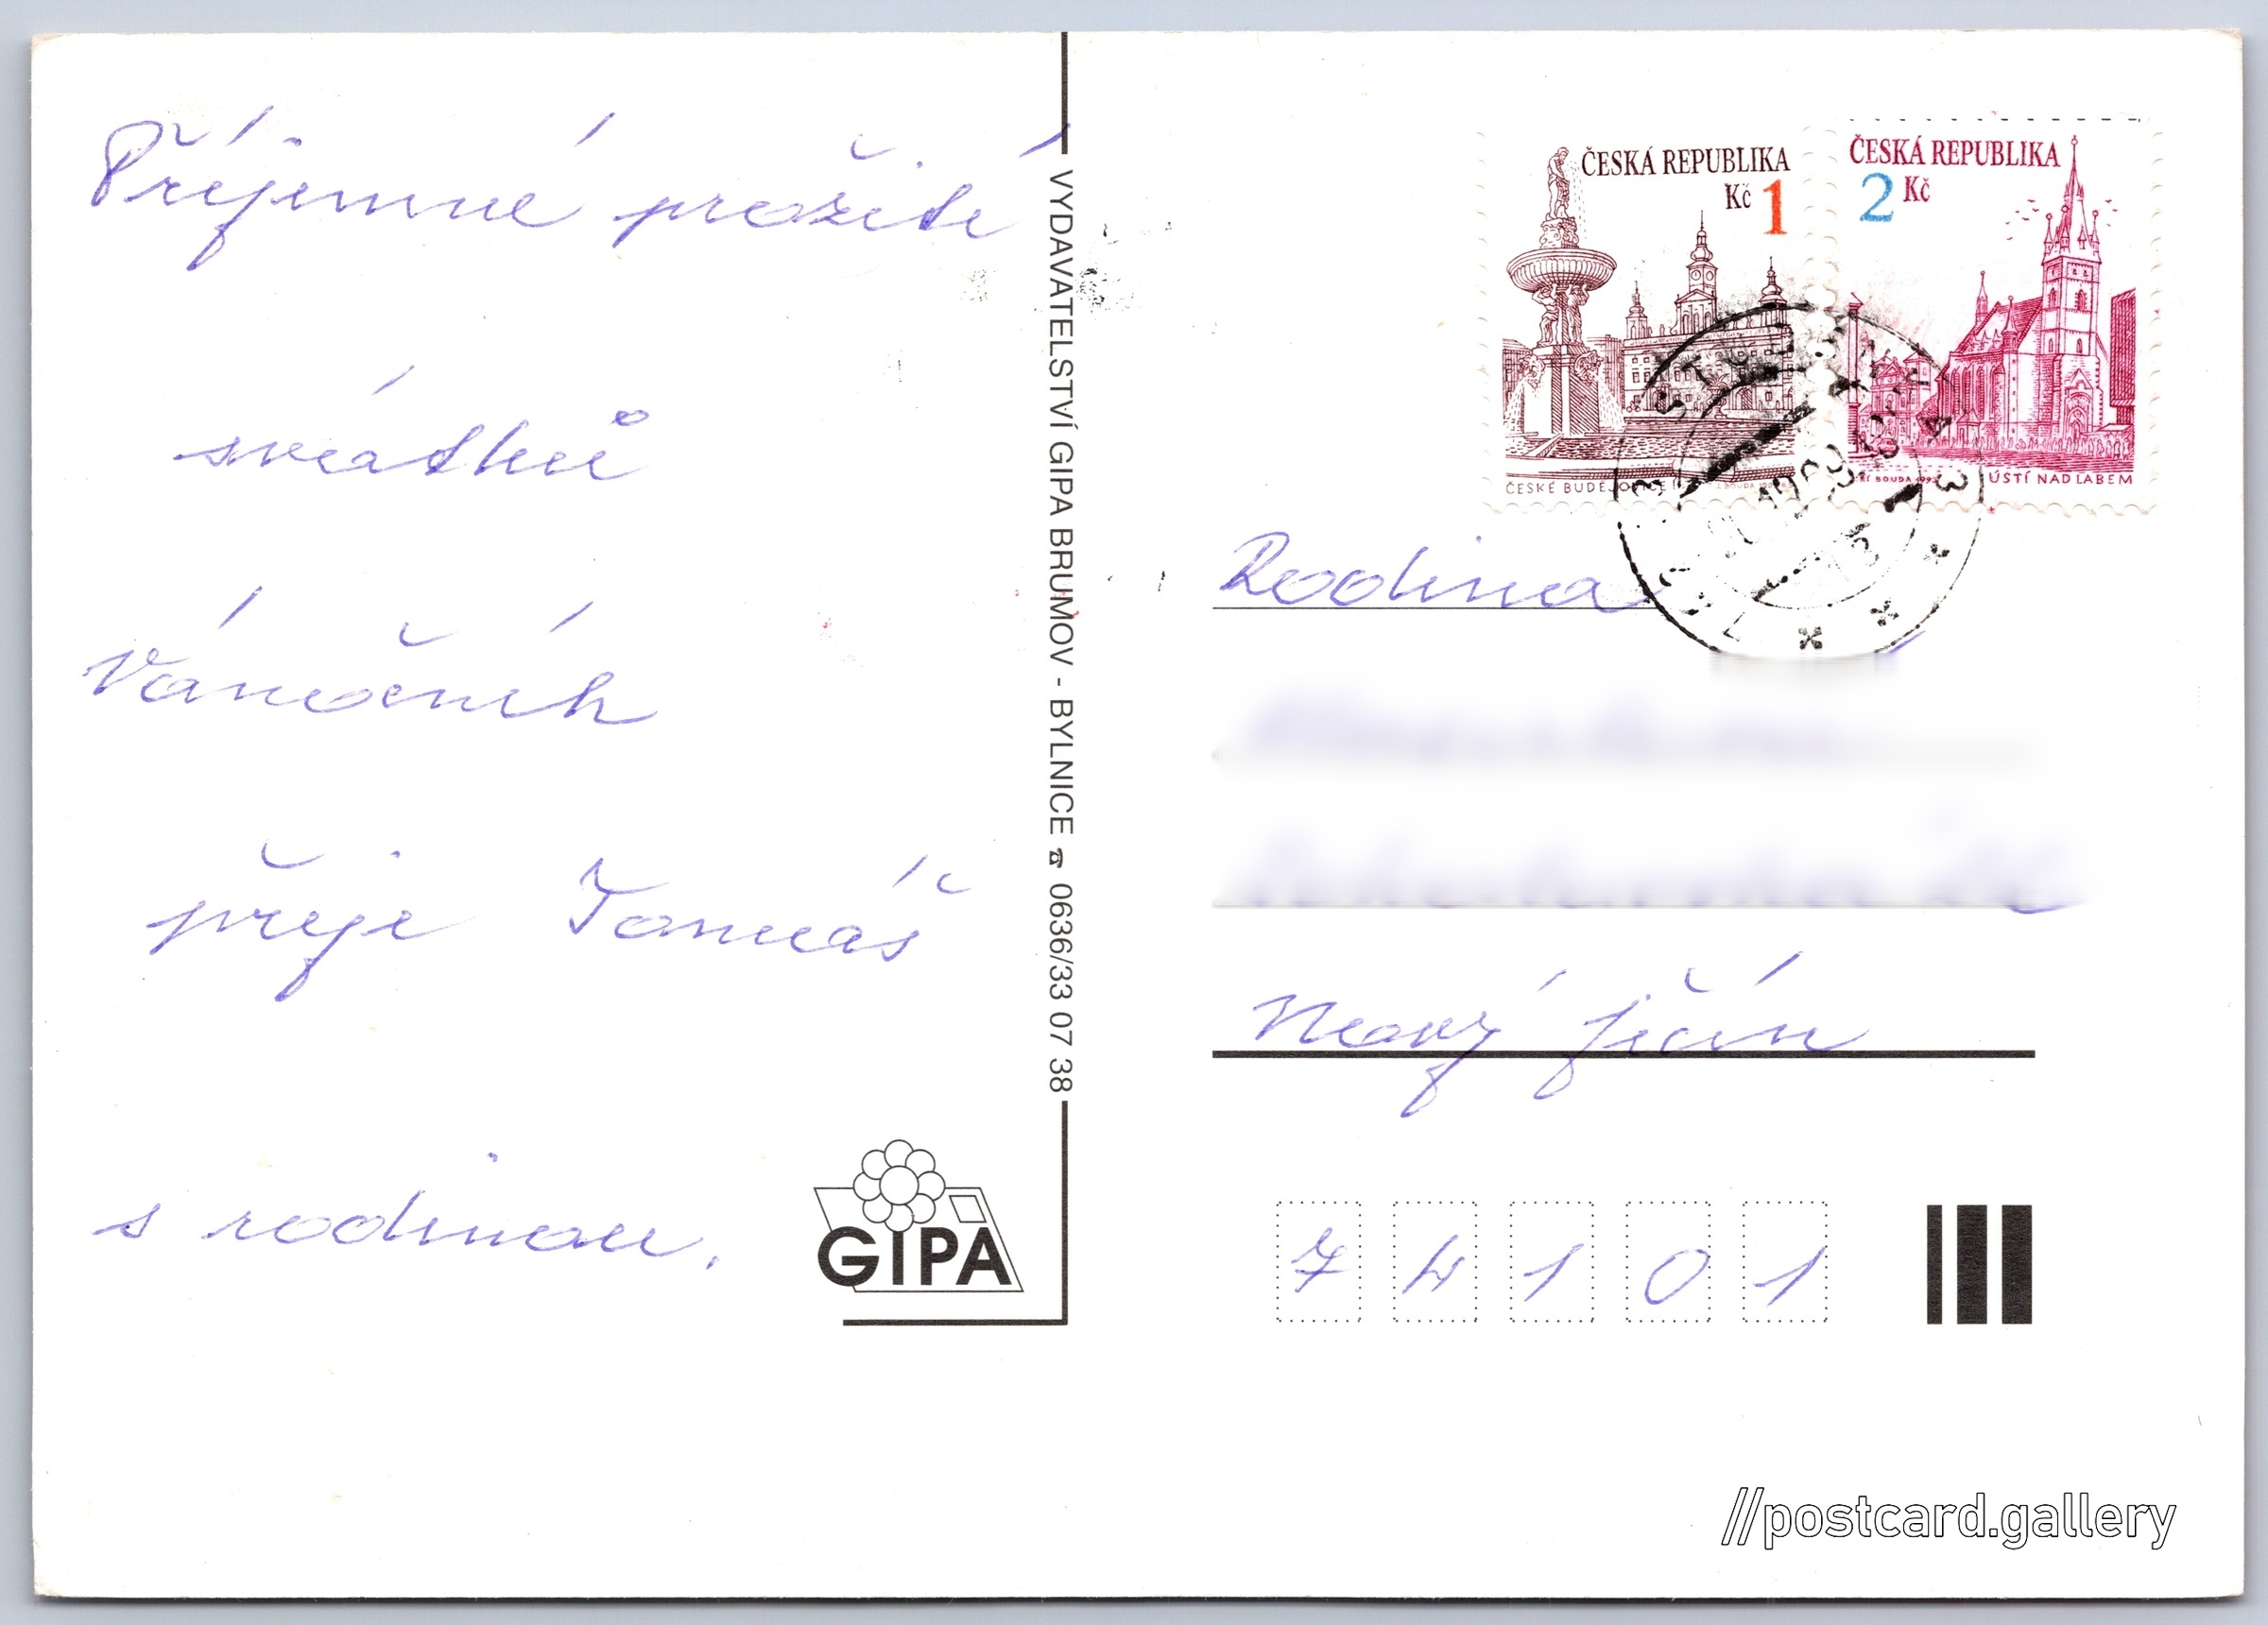 Příjemné prožití
svátků
Vánočních
přeje Tomáš
s rodinou.
VYDAVATELSTVÍ GIPA BRUMOV - BYLNICE ☎ 0636/33 07 38
GIPA
ČESKÁ REPUBLIKA
Kč 1
ČESKÉ BUDĚJOVICE
ČESKÁ REPUBLIKA
2 Kč
JIŘÍ BOUDA 1993
ÚSTÍ NAD LABEM
Rodina
Nový Jičín
7 4 1 0 1
//postcard.gallery